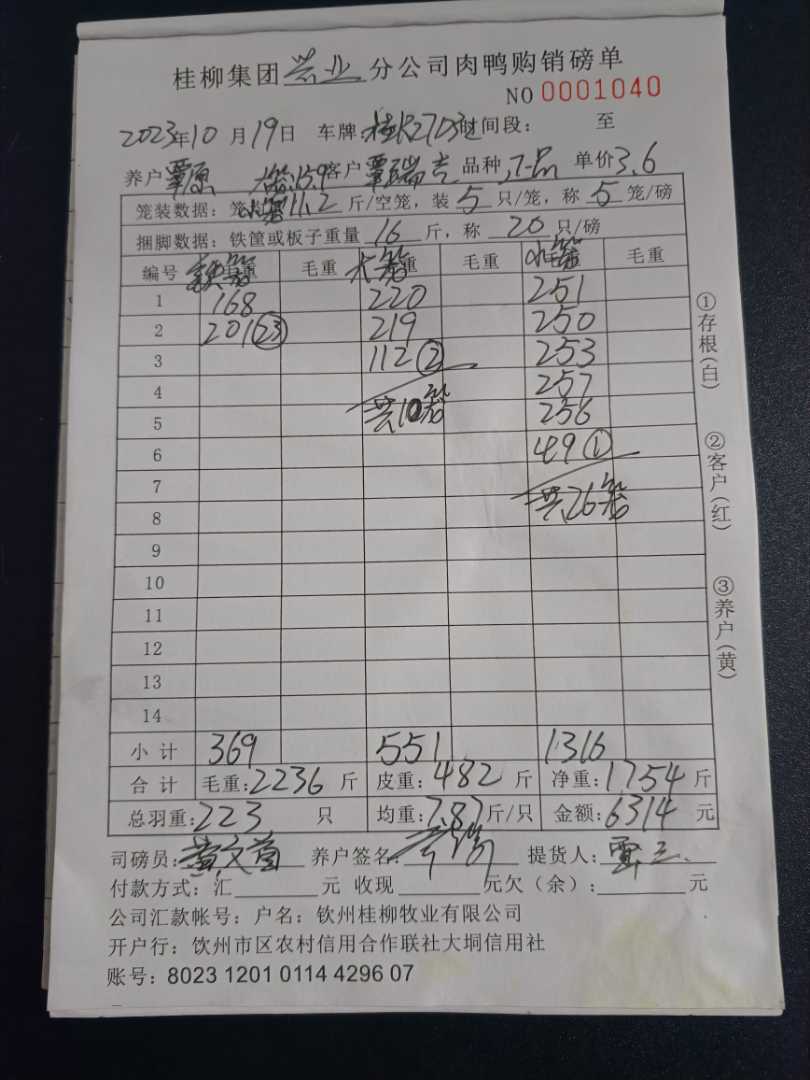 桂柳集团 兴业 分公司肉鸭购销磅单
NO 0001040
2023年10月19日 车牌: 桂K27D 时间段: 至
养户 覃原 大笼15.9 客户 覃瑞吉 品种 单价3.6
笼装数据: 笼 水笼11.2 斤/空笼, 装 5 只/笼, 称 5 笼/磅
捆脚数据: 铁筐或板子重量 16 斤, 称 20 只/磅
编号 铁笼 毛重 大笼 毛重 水笼 毛重
1 168 220 251
2 201(23) 219 250
3 112② 253
4 257
5 共10笼 256
6 49①
7
8 共26笼
9
10
11
12
13
14
小计 369 551 1316
合计 毛重: 2236 斤 皮重: 482 斤 净重: 1754 斤
总羽重: 223 只 均重: 7.87 斤/只 金额: 6314 元
司磅员: 黄文首 养户签名: 提货人:
付款方式: 汇 元 收现 元欠(余): 元
公司汇款帐号: 户名: 钦州桂柳牧业有限公司
开户行: 饮州市区农村信用合作联社大垌信用社
账号: 8023 1201 0114 4296 07
①存根(白)
②客户(红)
③养户(黄)